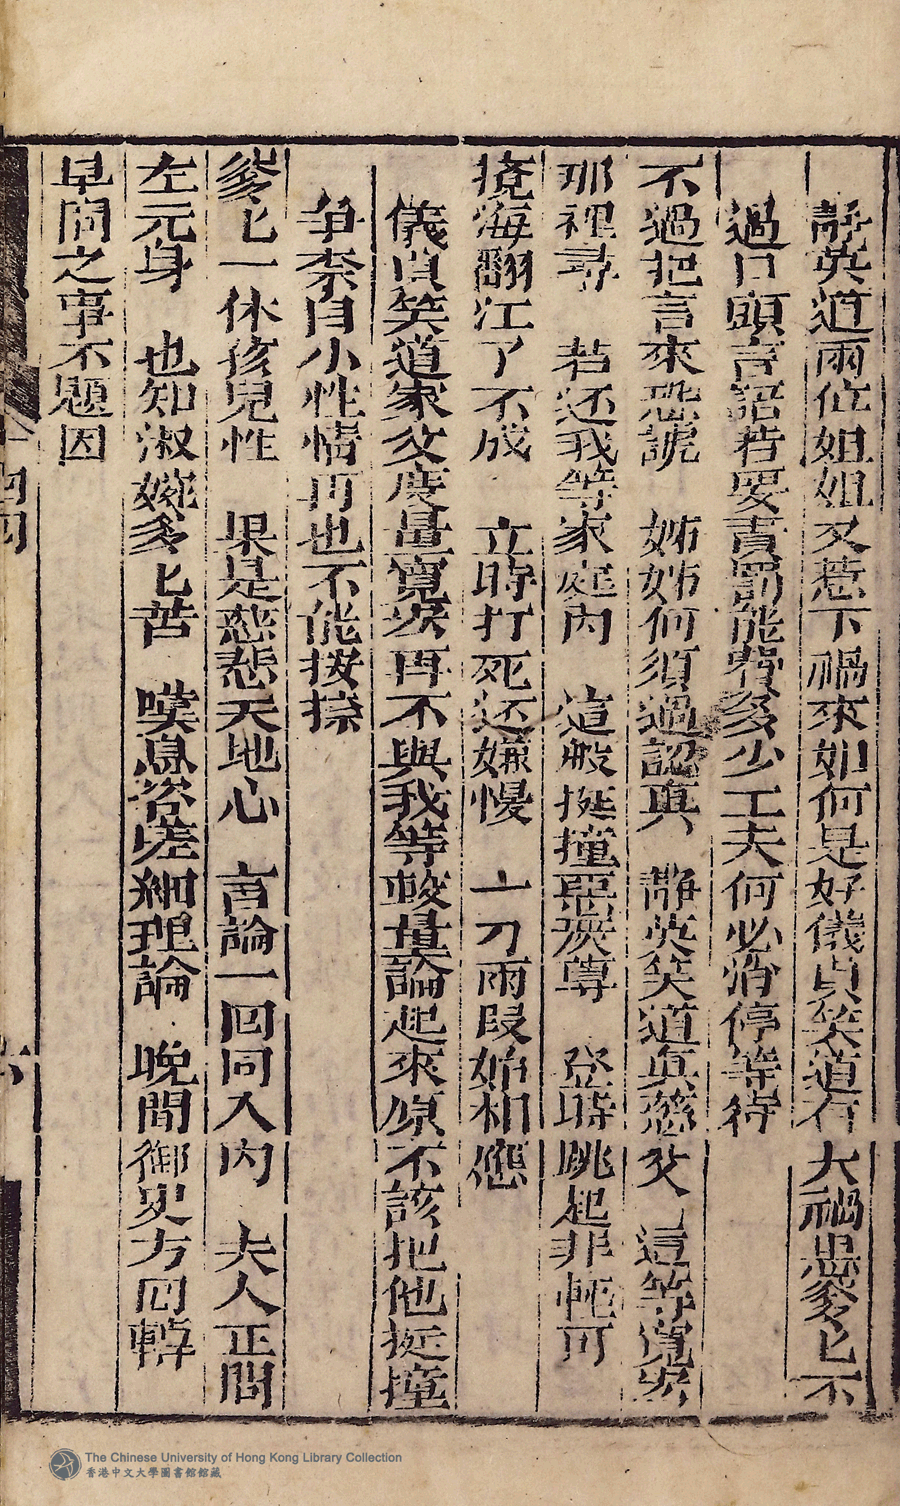 靜英道兩位姐姐又惹下禍來如何是好儀貞笑道有大禍思爹匕不
過口頭言語若要責罰能費多少工夫何必消停等待
不過把言來恐諕　姊姊何須過認真　靜英笑道真慈父　這等寬宏
那裡尋　若还我等家庭内　這般挺撞惡嚴尊　登時跳起非輕可
搅海翻江了不成　立時打死还嫌慢　一刀兩段始相應
儀貞笑道家父度量寬宏再不與我等較量論起來原不該把他挺撞
争柰自小性情再也不能按捺
爹匕一味孩兒性　果是慈悲天地心　言論一囬同入内　夫人正問
左元身　也知淑婉多匕苦　嘆息咨嗟細理論　晚間御史方囬轉
早間之事不題因
四四
The Chinese University of Hong Kong Library Collection
香港中文大學圖書館館藏